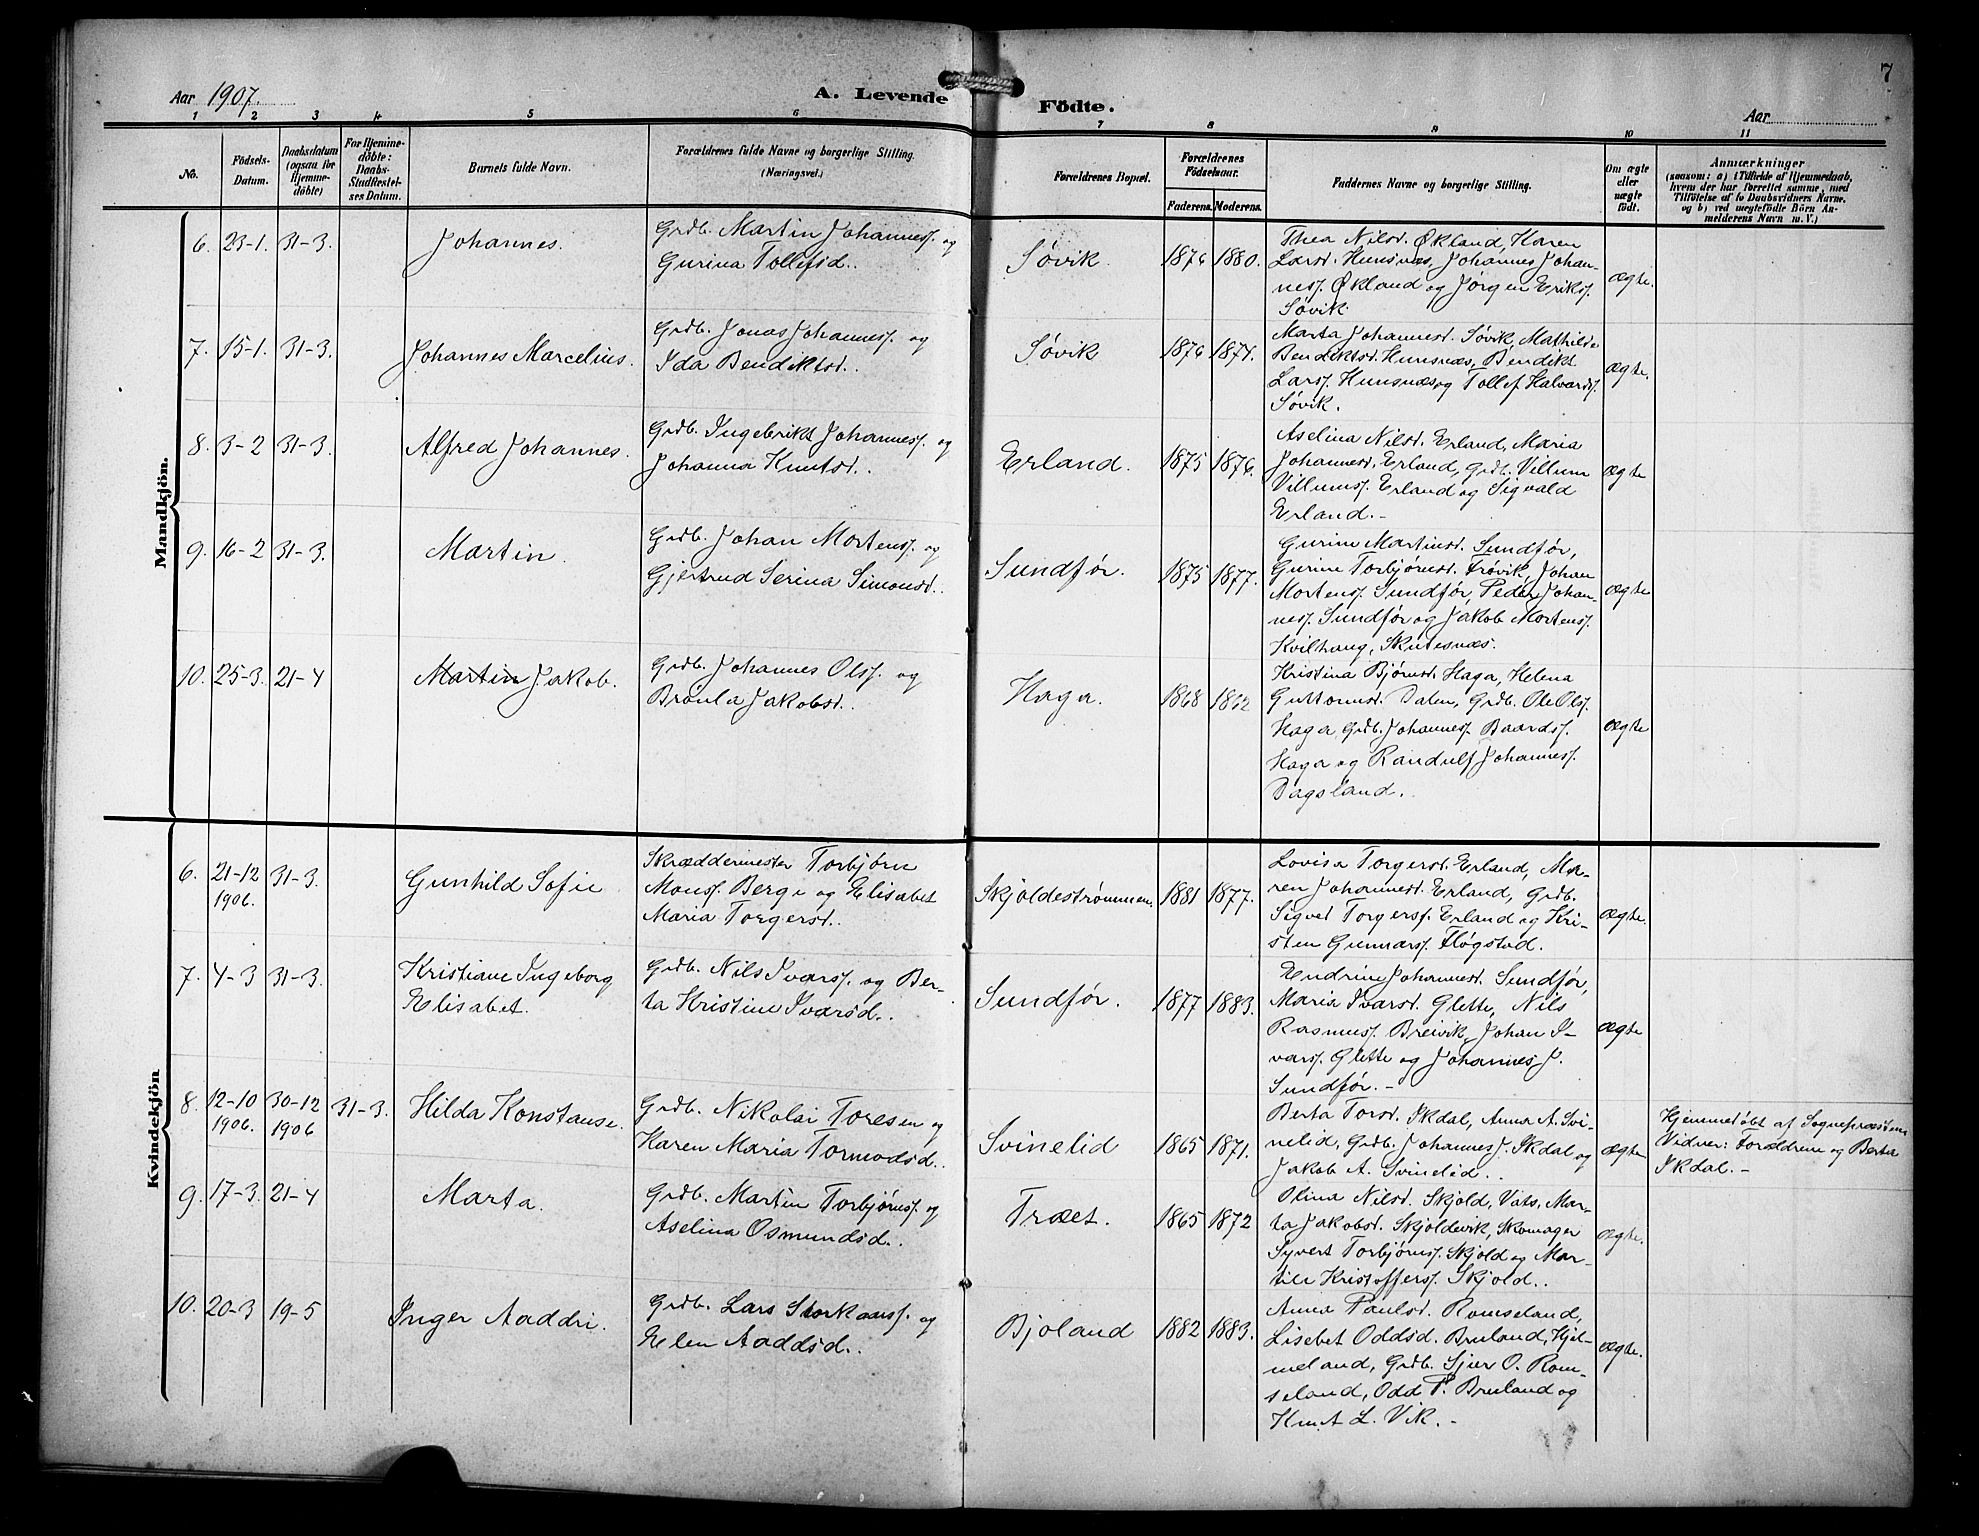 7
Aar 1907.
A. Levende
Födte.
Aar
1 2 3 4 5 6 7 8 9 10 11
No.
Födsels-
Datum.
Daabsdatum
(ogsaa for
Hjemme-
döbte)
For Hjemme-
döbte:
Daabs-
Stadfæstel-
ses Datum.
Barnets fulde Navn.
Forældrenes fulde Navne og borgerlige Stilling.
(Næringsvei.)
Forældrenes Bopæl.
Forældrenes
Födselsaar.
Faderens. Moderens.
Faddernes Navne og borgerlige Stilling.
Om ægte
eller
uægte
födt.
Anmærkninger
(saasom: a) i Tilfælde af Hjemmedaab,
hvem der har forrettet samme, med
Tilföielse af to Daabsvidners Navne.
og b) ved uægtefödte Börn An-
melderens Navn m. V.)
Mandkjön.
6. 23-1. 31-3.
Johannes.
Grdb. Martin Johanness. og
Gurina Tollefsd.
Søvik.
1876 1880.
Thea Nilsd. Økland, Karen
Larsd. Hunsnæs, Johannes Johan-
ness. Økland og Jørgen Eriks.
Søvik.
ægte.
7. 15-1. 31-3.
Johannes Marcelius.
Grdb. Jonas Johanness. og
Ida Bendiktsd.
Søvik
1876 1874.
Marta Johannesd. Søvik, Mathilde
Bendiktsd. Hunsnæs, Bendikt
Larss. Hunsnæs og Tollef Halvards.
Søvik.
ægte.
8. 3-2 31-3.
Alfred Johannes.
Grdb. Ingebrikt Johanness. og
Johanna Knutsd.
Erland.
1875 1876.
Aselina Nilsd. Erland, Maria
Johannesd. Erland, Grdb. Villum
Villums. Erland og Sigvald
Erland.-
ægte
9. 16-2 31-3.
Martin.
Grdb. Johan Mortens. og
Gjertrud Serina Simonsd.
Sundfør.
1875 1877.
Gurine Martinsd. Sundfør,
Gurine Torbjørnsd. Frøvik, Johan
Mortens. Sundfør, Peder Johan-
ness. Sundfør og Jakob Mortens.
Kvilhaug, Skutesnæs.
ægte
10. 25-3. 21-4
Martin Jakob.
Grdb. Johannes Ols. og
Brønla Jakobsd.
Haga.
1868 1862
Kristina Bjørnsd. Haga, Helena
Guttormsd. Dalen, Grdb. Ole Ols.
Haga, Grdb. Johannes Baards.
Haga og Randulf Johanness.
Dagsland.
ægte
Kvindekjön
6. 21-12 31-3.
1906.
Gunhild Sofie
Skræddermester Torbjørn
Mons. Berge og Elisabet
Maria Torgersd.
Skjoldestrømmen.
1881 1877.
Lovisa Torgersd. Erland, Ma-
ren Johannesd. Erland, Grdb.
Sigved Torgers. Erland og Kri-
sten Gunnars. Fløgstad.
ægte.
7. 4-3 31-3.
Kristiane Ingeborg
Elisabet.
Grdb. Nils Ivars. og Ber-
ta Kristine Ivarsd.
Sundfør.
1877 1883.
Endrine Johannesd. Sundfør,
Maria Ivarsd. Glette, Nils
Rasmus. Breivik, Johan I-
vars. Glette og Johannes J.
Sundfør.-
ægte
8. 12-10 30-12 31-3.
1906. 1906
Hilda Konstanse.
Grdb. Nikolai Toresen og
Karen Maria Tormodsd.
Svinelid
1865 1871.
Berta Torsd. Skdal, Anna A. Svi-
nelid, Grdb. Johannes J. Skdal og
Jakob A. Svinelid.
ægte
Hjemmedøbt af Sognepræsten.
Vidner: Forældrene og Berta
Skdal.-
9. 17-3. 21-4
Marta.
Grdb. Martin Torbjørns. og
Aselina Osmundsd.
Træet.
1865 1872
Olina Nilsd. Skjold, Vats, Mar-
ta Jakobsd. Skjoldevik, Skomager
Syvert Torbjørns. Skjold og Mar-
tile Kristoffers. Skjold.
ægte.
10. 20-3 19-5
Inger Aaddri.
Grdb. Lars Storkaass. og
Elen Aaddsd.
Bjoland
1882 1883.
Anna Paulsd. Romseland,
Lisebet Oddsd. Bruland, Hjel-
meland, Grdb. Sjur O. Rom-
seland, Odd P. Bruland og
Knut L. Vik.-
ægte.